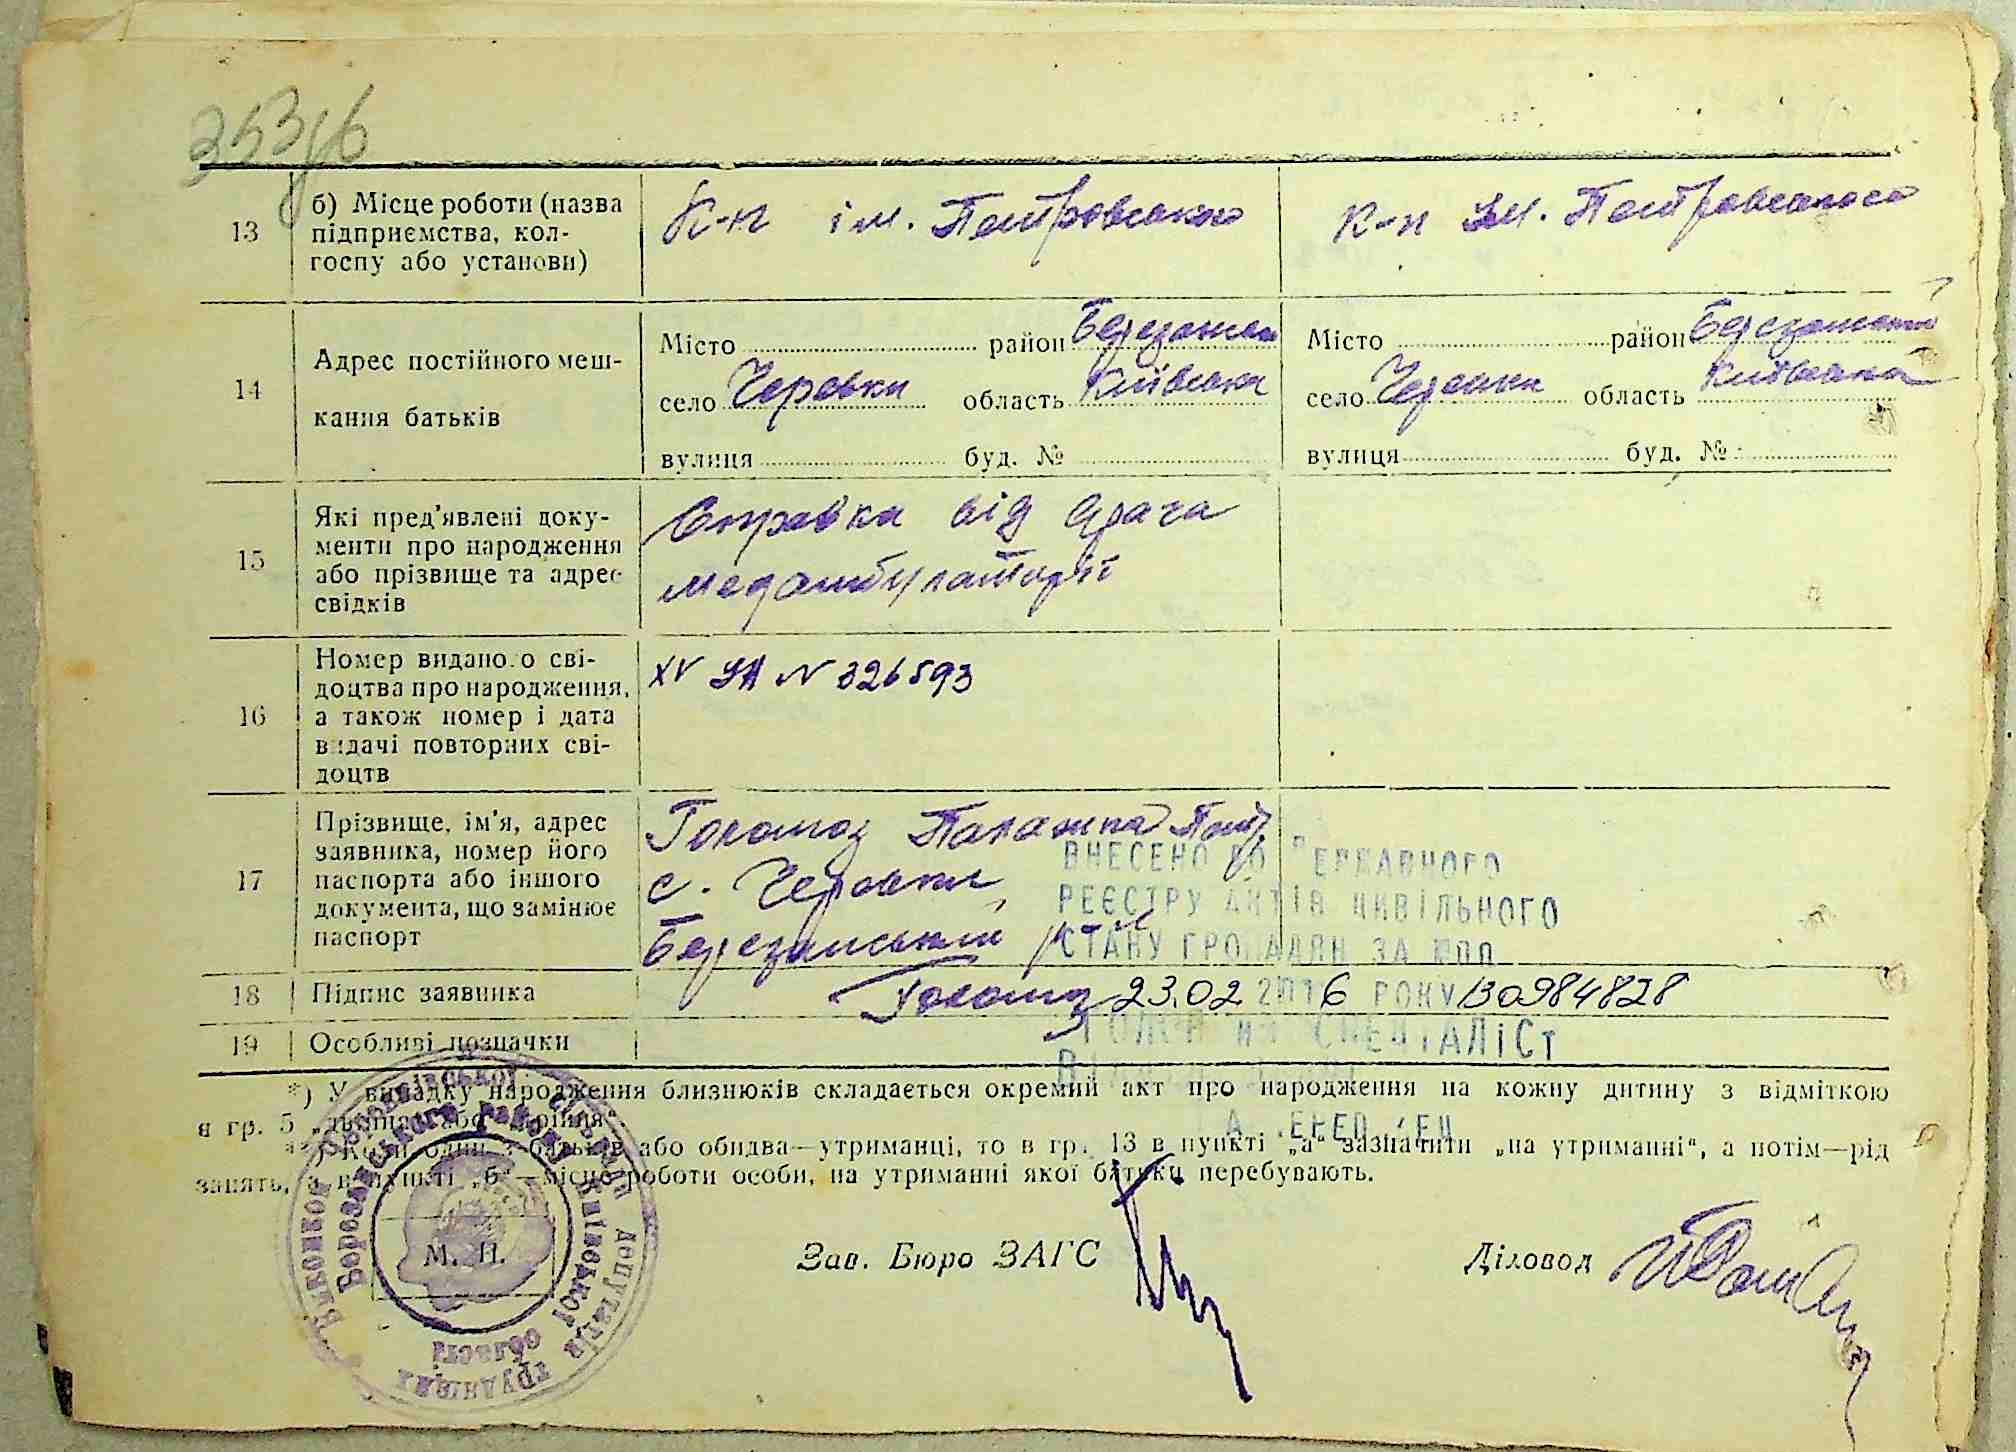 253/6
13
б) Місце роботи (назва
підприємства, кол-
госпу або установи)
К-п ім. Петровського
К-п ім. Петровського
14
Адрес постійного меш-
кання батьків
Місто район Березанськ
село Черевки область Київська
вулиця буд. №
Місто район Березанський
село Черевки область Київська
вулиця буд. №
15
Які пред'явлені доку-
менти про народження
або прізвище та адрес
свідків
Справка від врача
медамбулаторії
16
Номер виданого сві-
доцтва про народження,
а також номер і дата
видачі повторних сві-
доцтв
XV УА N 326593
17
Прізвище, ім'я, адрес
заявника, номер його
паспорта або іншого
документа, що замінює
паспорт
Голомоз Палажка Петр
с. Черевки
Березанський р-н
ВНЕСЕНО ДО ДЕРЖАВНОГО
РЕЄСТРУ АКТІВ ЦИВІЛЬНОГО
СТАНУ ГРОМАДЯН ЗА №
18
Підпис заявника
Голомоз
23.02 2016 РОКУ 130984828
19
Особливі позначки
ГОЛОВНИЙ СПЕЦІАЛІСТ
*) У випадку народження близнюків складається окремий акт про народження на кожну дитину з відміткою
в гр. 5 „двійня" або „трійня".
**) Коли один з батьків або обидва—утриманці, то в гр. 13 в пункті „а" зазначити „на утриманні", а потім—рід
занять, а в пункті „б"—місце роботи особи, на утриманні якої батьки перебувають.
М. П.
Виконком сільської ради депутатів трудящих
Березанського району Київської області
Зав. Бюро ЗАГС
Діловод